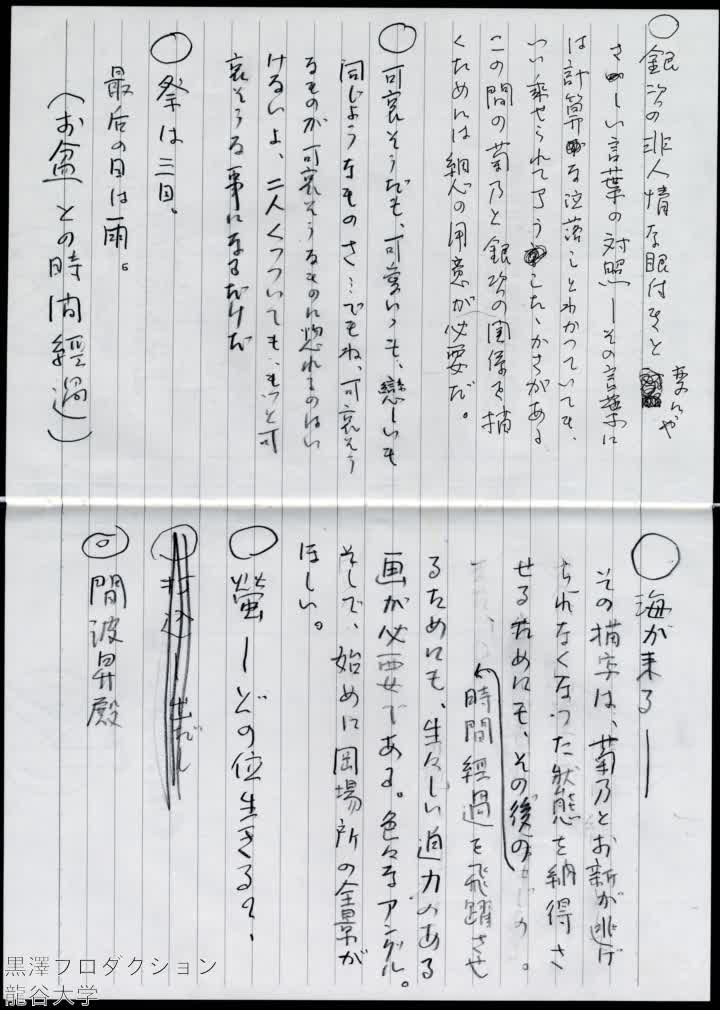 ○ 銀次の非人情な眼付きと
妙にや
さしい言葉の対照ーその言葉に
は計算な泣落しとわかつていても、
つい乗せられて了うしたゝかさがある
この間の菊乃と銀次の関係を描
くためには細心の用意が必要だ。
○ 可哀そうだも、可愛いゝも、戀しいも
同じようなものさ…でもね、可哀そう
なものが可哀そうなものに惚れるのはい
けないよ、二人くつついても、もつと可
哀そうな事になるだけだ
○ 祭は三日。
最后の日は雨。
(お盆との時間経過)
○ 海が来るー
その描写は、菊乃とお新が逃げ
られなくなつた状態を納得さ
せるためにも、その後の
時間経過を飛躍させ
るためにも、生々しい迫力のある
画が必要である。色々なアングル。
そして、始めに岡場所の全景が
ほしい。
○ 螢ーどの位生きる?、
○ 間波昇殿
黒澤プロダクション
龍谷大学